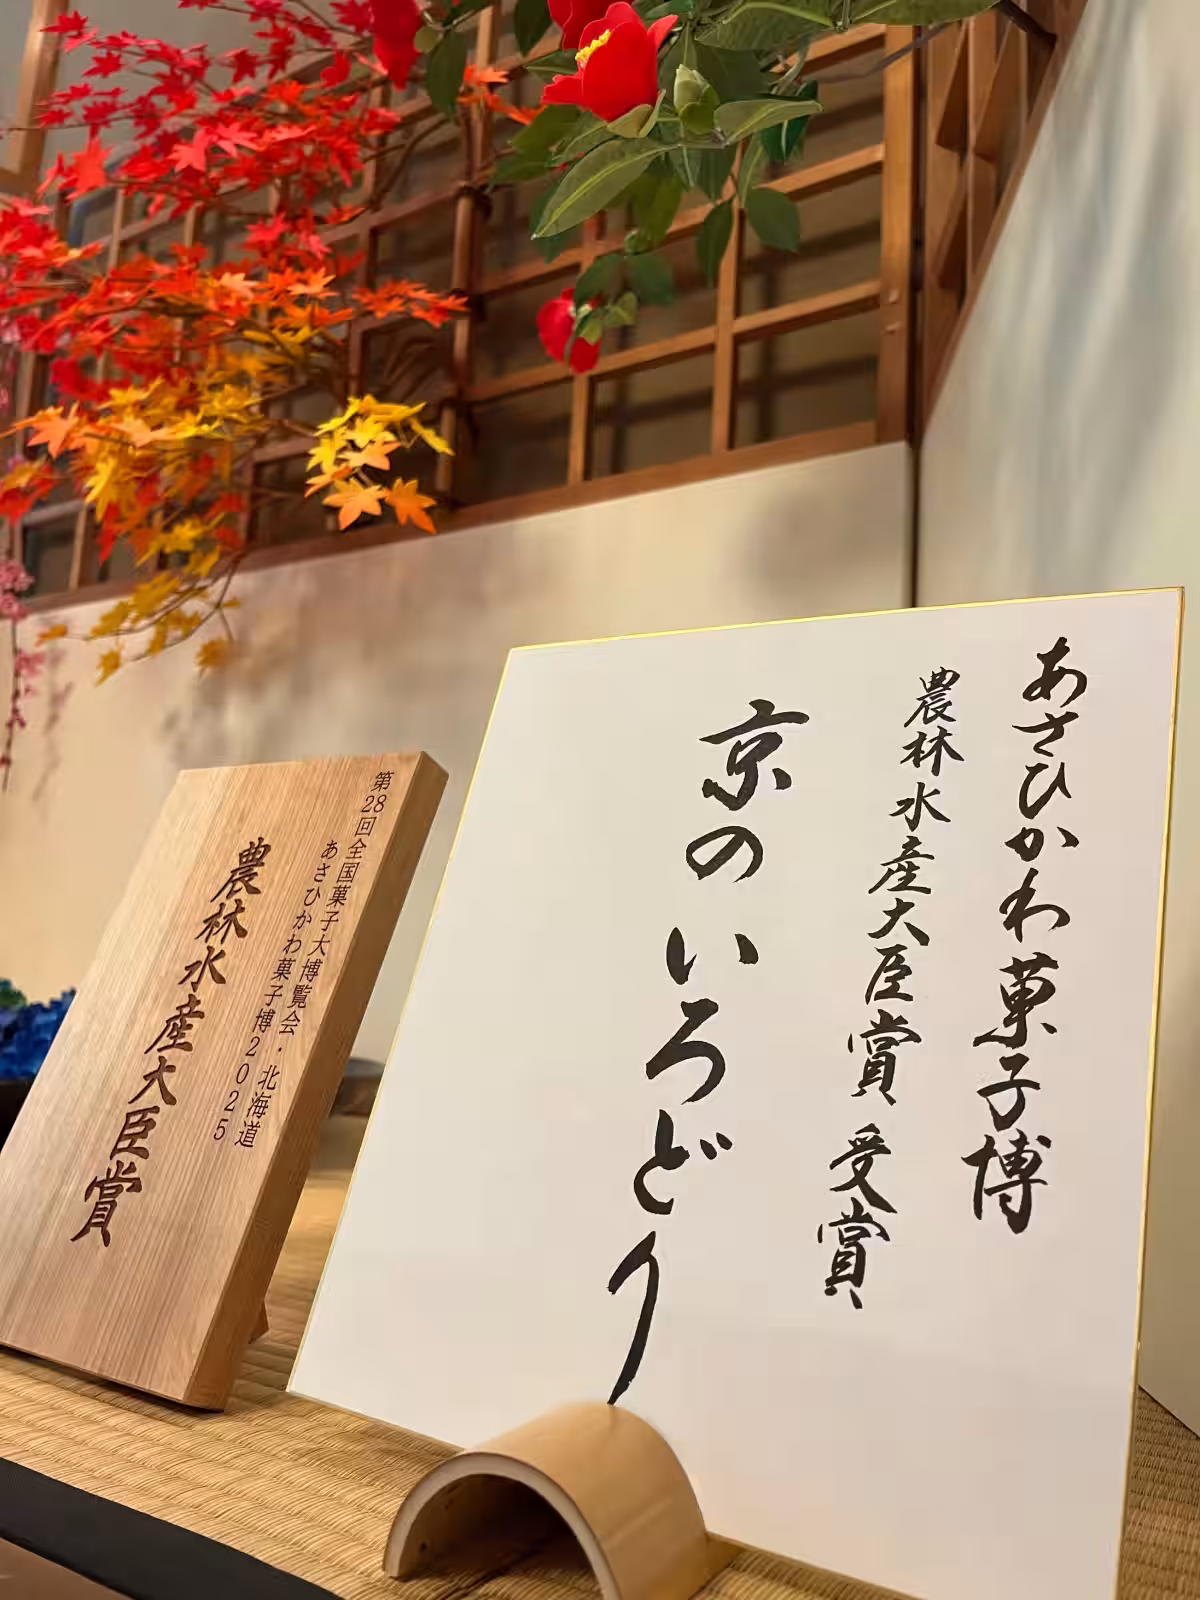 あさひかわ菓子博
農林水産大臣賞 受賞
京のいろどり
第28回全国菓子大博覧会・北海道
あさひかわ菓子博2025
農林水産大臣賞